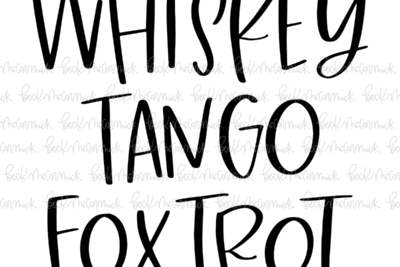 WHISKEY
TANGO
FOXTROT